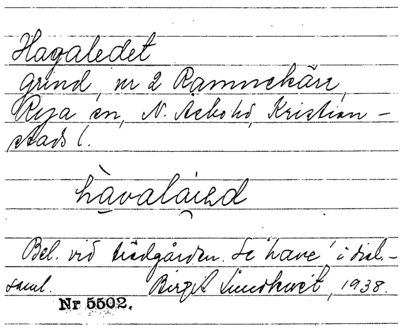 Hagaledet
grind, nr 2 Ramnekärr,
Röja sn, N. Åsbo hd, Kristian-
stads l.
hàvalàiəd
Bel. vid trädgården. Se 'have' i dial.-
saml. Birgit Lundkvist, 1938.
Nr 5502.